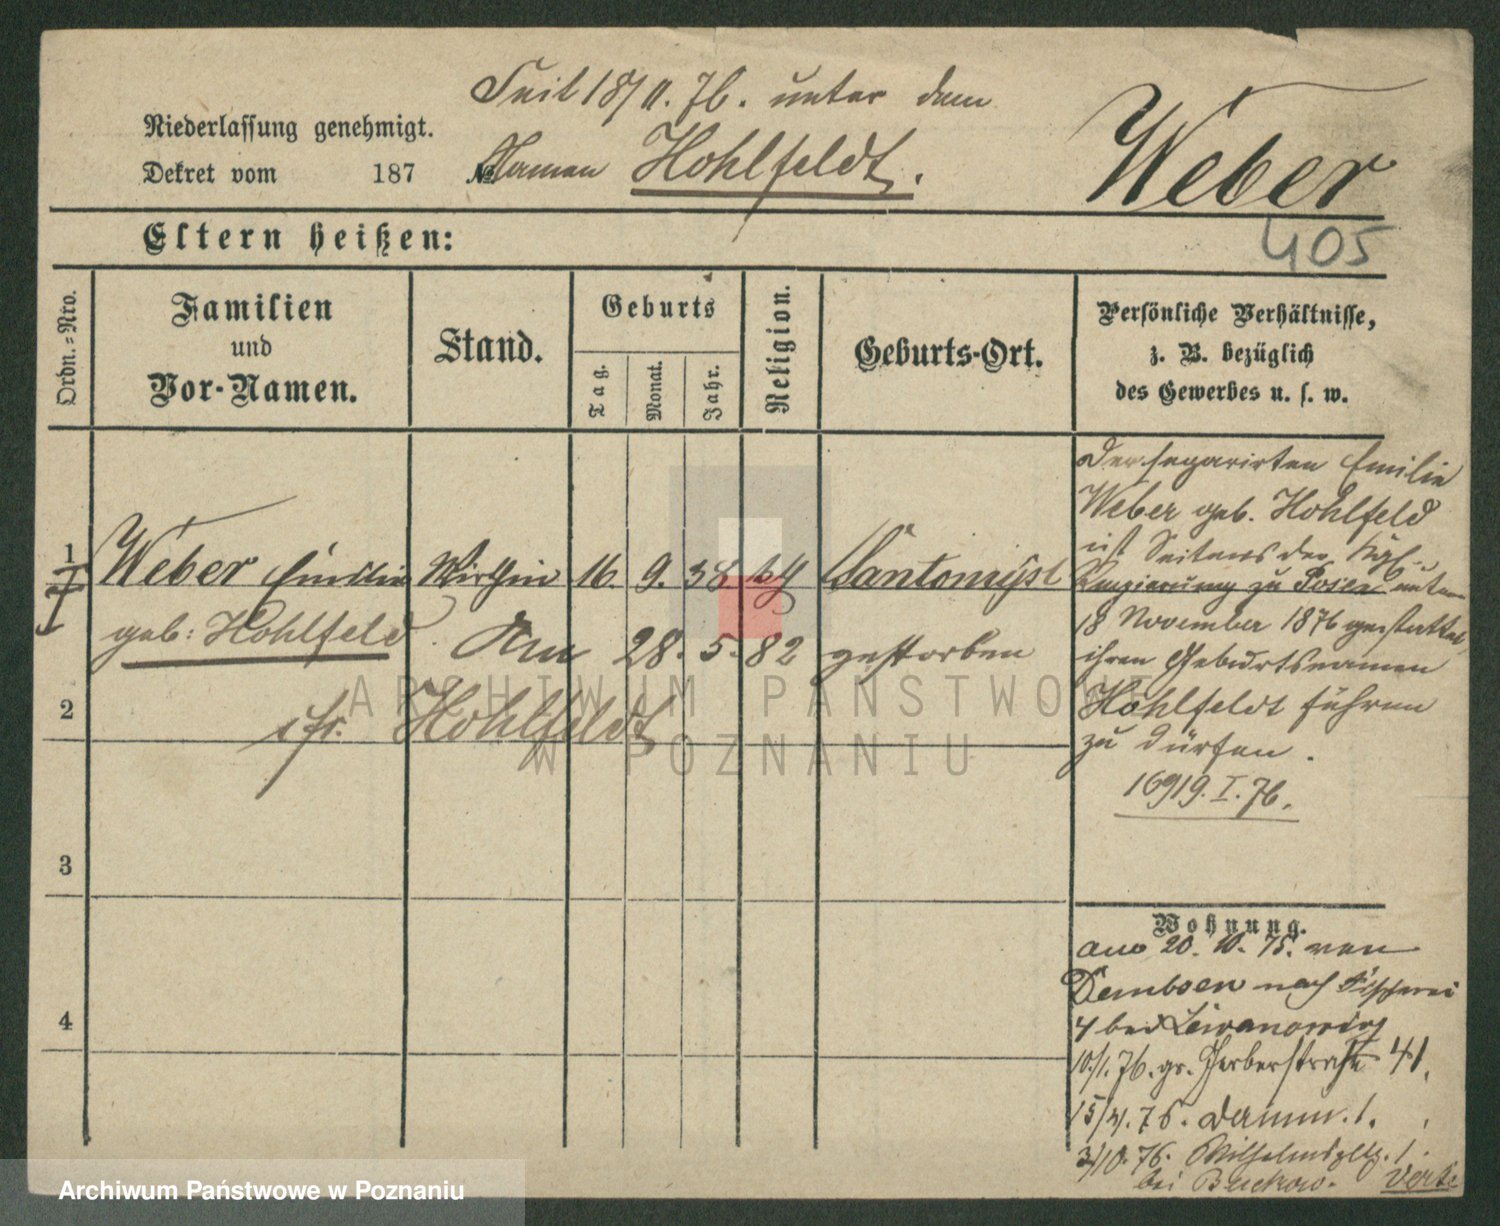 Seit 18/11.76. unter dem
Niederlassung genehmigt.
Namen Hohlfeldt.
Weber
Dekret vom 187 №
405
Eltern heißen:
Ordn.=Nro.
Familien
und
Vor-Namen.
Stand.
Geburts
Tag.
Monat.
Jahr.
Religion.
Geburts-Ort.
Persönliche Verhältnisse,
z. B. bezüglich
des Gewerbes u. s. w.
1 Weber Emilie Wirthin 16. 9. 38 Santomysl
geb: Hohlfeld
Am 28. 5. 82 gestorben
2
cfr. Hohlfeldt
3
4
Der separirten Emilie
Weber geb. Hohlfeld
ist Seitens der Kgl.
Regierung zu Posen unterm
18 November 1876 gestattet,
ihren Geburtsnamen
Hohlfeldt führen
zu dürfen.
16919.I.76.
Wohnung.
am 20. 10. 75. von
Dembsen nach Fischerei
4 bei
10/1.76. gr. Gerberstraße 41.
15/4.76. Damm. 1.
3/10.76. Wilhelmspltz. 1.
bei Buckow. Verte
ARCHIWUM PAŃSTWOWE
W POZNANIU
Archiwum Państwowe w Poznaniu